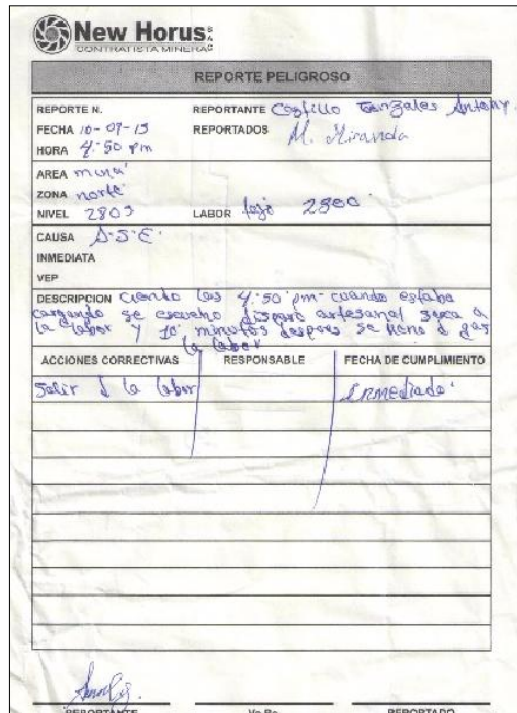 New Horus
CONTRATISTA MINERA
REPORTE PELIGROSO
REPORTE N. REPORTANTE Gonzales Antony
FECHA 10-09-15 REPORTADOS M. Miranda
HORA 4:50 pm
AREA mina
ZONA norte
NIVEL LABOR
CAUSA A-S-E
INMEDIATA
VEP
DESCRIPCION ciendo las 4:50 pm cuando estaba
cargando se escucho disparo artesanal serca a
la labor y 10 minutos despues se lleno d gas
la labor
ACCIONES CORRECTIVAS RESPONSABLE FECHA DE CUMPLIMIENTO
Salir d la labor Inmediado
REPORTANTE Vo.Bo. REPORTADO